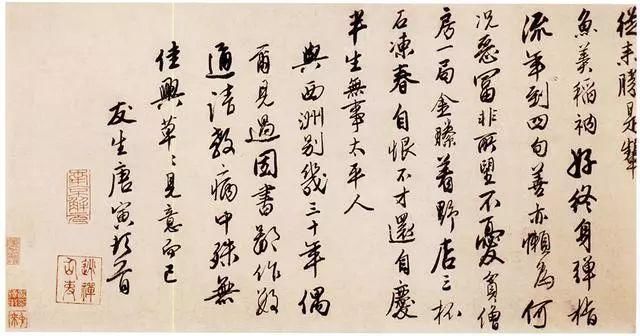 從來
魚羹稻衲好終身彈指
流年到四旬善亦懶為何
況惡富非所望不憂貧僧
房一局金縢着野店三杯
石凍春自恨不才還自慶
半生無事太平人
與西洲別幾三十年偶
爾見過因書鄙作
請教病中殊無
佳興草々見意而已
友生唐寅頓首
南京解元
逃禪仙吏